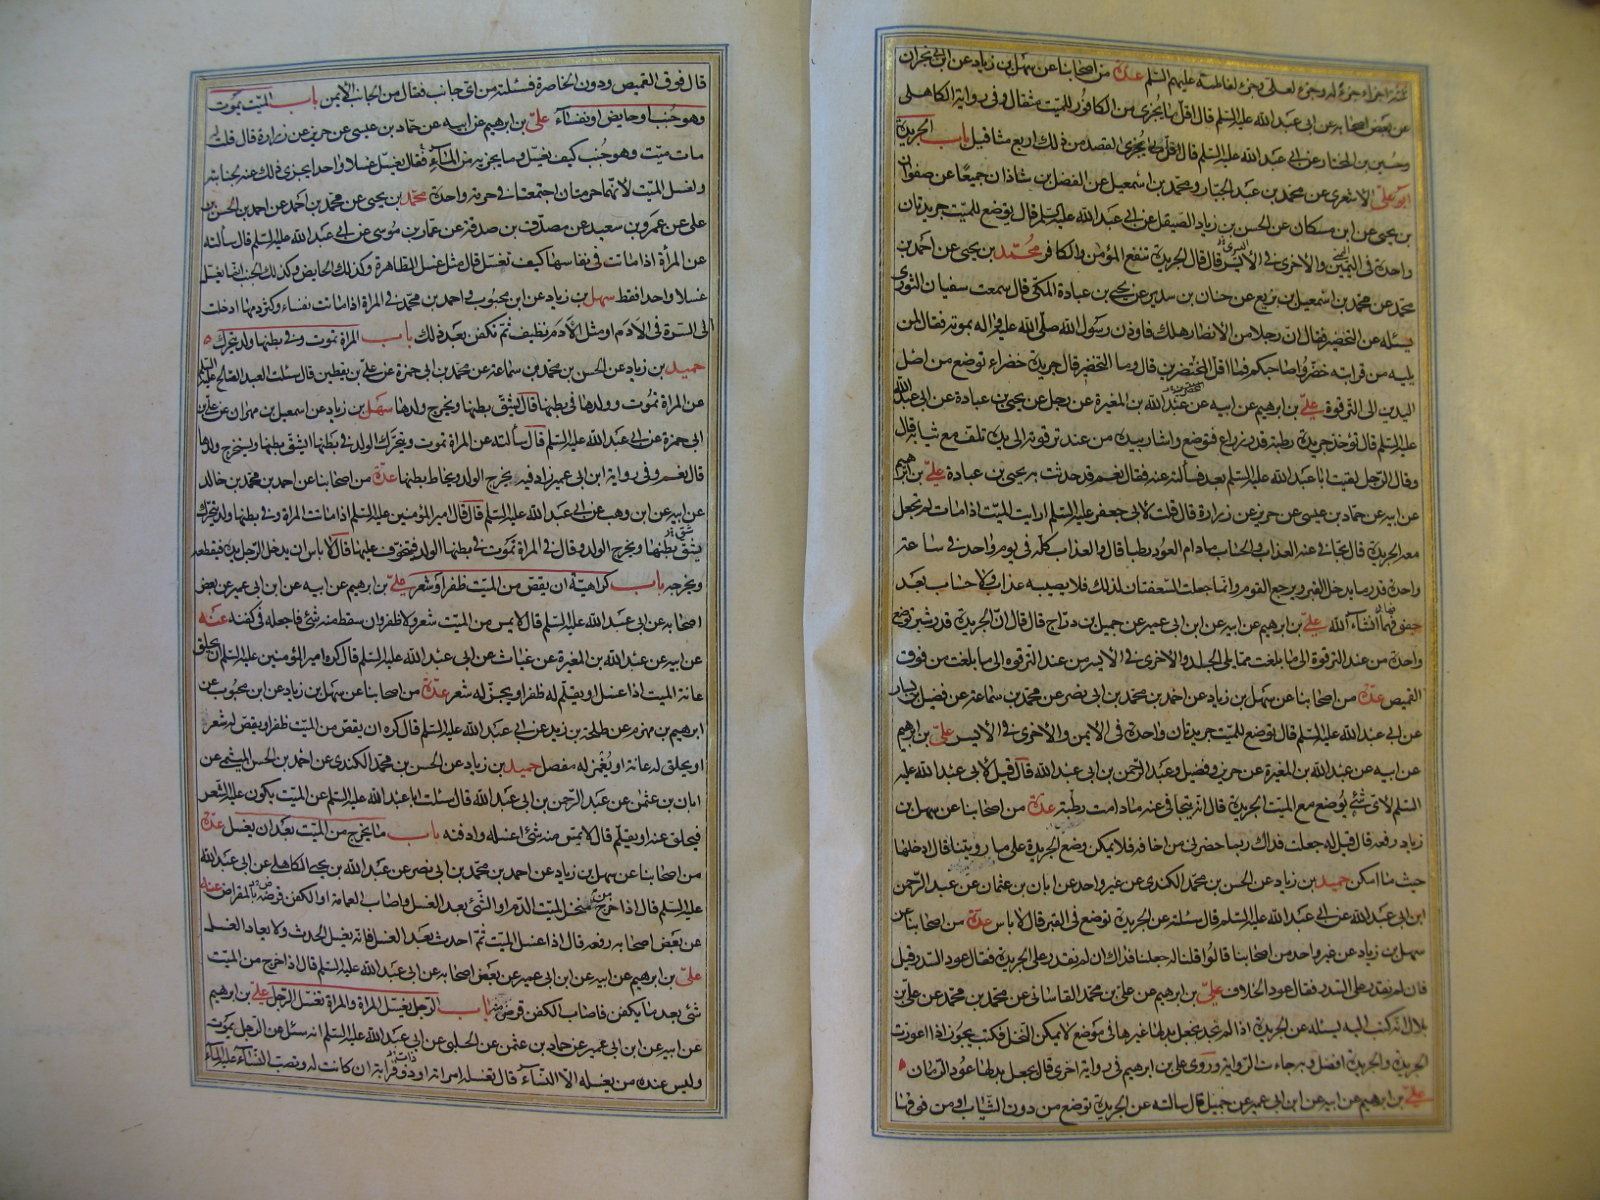 عن بعض اصحابه عن ابى عبد الله عليه السلم قال اقل ما يجزى من الكافور للميت مثقال وفى رواية الكاهلى
وحسين بن المختار عن ابى عبد الله عليه السلم قال القصد من ذلك اربع مثاقيل باب الجريدة
ابو على الاشعرى عن محمد بن عبد الجبار ومحمد بن اسمعيل عن الفضل بن شاذان جميعًا عن صفوان
بن يحيى عن ابن مسكان عن الحسن بن زياد الصيقل عن ابى عبد الله عليه السلم قال يوضع للميت جريدتان
واحدة فى اليمين والاخرى فى الايسر قال قال الجريدة تنفع المؤمن والكافر محمد بن يحيى عن احمد بن
محمد عن محمد بن اسمعيل بن بزيع عن حنان بن سدير عن يحيى بن عبادة المكى قال سمعت سفيان الثورى
يسئله عن التخضير فقال ان رجلا من الانصار هلك فاوذن رسول الله صلى الله عليه واله بموته فقال لمن
يليه من قرابته خضروا صاحبكم فما اقل المخضرين قال وما التخضير قال جريدة خضراء توضع من اصل
اليدين الى الترقوة على بن ابرهيم عن ابيه عن عبد الله بن المغيرة عن رجل عن يحيى بن عبادة عن ابى عبد الله
عليه السلم قال تؤخذ جريدة رطبة قدر ذراع فتوضع واشار بيده من عند ترقوته الى يده تلف مع ثيابه قال
وقال الرجل لقيت ابا عبد الله عليه السلم بعد فسألته عنه فقال نعم قد حدثت به يحيى بن عبادة على بن ابرهيم
عن ابيه عن حماد بن عيسى عن حريز عن زرارة قال قلت لابى جعفر عليه السلم ارايت الميت اذا مات لم تجعل
معه الجريدة قال يتجافى عنه العذاب والحساب ما دام العود رطبا قال والعذاب كله فى يوم واحد فى ساعة
واحدة قدر ما يدخل القبر ويرجع القوم وانما جعلت السعفتان لذلك فلا يصيبه عذاب ولا حساب بعد
جفوفهما ان شاء الله على بن ابرهيم عن ابيه عن ابن ابى عمير عن جميل بن دراج قال قال ان الجريدة قدر شبر توضع
واحدة من عند الترقوة الى ما بلغت مما يلى الجلد والاخرى فى الايسر من عند الترقوة الى ما بلغت من فوق
القميص عدة من اصحابنا عن سهل بن زياد عن احمد بن محمد بن ابى نصر عن محمد بن سماعة عن فضيل بن يسار
عن ابى عبد الله عليه السلم قال توضع للميت جريدتان واحدة فى الايمن والاخرى فى الايسر على بن ابرهيم
عن ابيه عن عبد الله بن المغيرة عن حريز وفضيل وعبد الرحمن بن ابى عبد الله قال قيل لابى عبد الله عليه
السلم لاى شئ توضع مع الميت الجريدة قال انه يتجافى عنه ما دامت رطبة عدة من اصحابنا عن سهل بن
زياد رفعه قال قيل له جعلت فداك ربما حضرنى من اخافه فلا يمكن وضع الجريدة على ما رويتنا قال ادخلها
حيث ما امكن حميد بن زياد عن الحسن بن محمد الكندى عن غير واحد عن ابان بن عثمان عن عبد الرحمن
ابن ابى عبد الله عن ابى عبد الله عليه السلم قال سئلته عن الجريدة توضع فى القبر قال لا باس عدة من اصحابنا عن
سهل بن زياد عن غير واحد من اصحابنا قالوا قلنا له جعلنا فداك ان لم نقدر على الجريدة فقال عود السدر قيل
فان لم نقدر على السدر فقال عود الخلاف على بن ابرهيم عن على بن محمد القاسانى عن محمد بن محمد عن على بن
بلال انه كتب اليه يسئله عن الجريدة اذا لم نجد نجعل بدلها غيرها فى موضع لا يمكن النخل فكتب يجوز اذا اعوزت
الجريدة والجريدة افضل وبه جاءت الرواية وروى على بن ابرهيم فى رواية اخرى قال يجعل بدلها عود الرمان
على بن ابرهيم عن ابيه عن ابن ابى عمير عن جميل قال سالته عن الجريدة توضع من دون الثياب او من فوقها
قال فوق القميص ودون الخاصرة فسئلته من اى جانب فقال من الجانب الايمن باب الميت يموت
وهو جنب او حايض او نفساء على بن ابرهيم عن ابيه عن حماد بن عيسى عن حريز عن زرارة قال قلت له
مات ميت وهو جنب كيف يغسل وما يجزيه من الماء فقال يغسل غسلا واحدا يجزى ذلك عنه لجنابته
ولغسل الميت لانهما حرمتان اجتمعتا فى حرمة واحدة محمد بن يحيى عن محمد بن احمد عن احمد بن الحسن بن
على عن عمرو بن سعيد عن مصدق بن صدقة عن عمار بن موسى عن ابى عبد الله عليه السلم قال سألته
عن المرأة اذا ماتت فى نفاسها كيف تغسل قال مثل غسل الطاهرة وكذلك الحايض وكذلك الجنب انما يغسل
غسلا واحدا فقط سهل بن زياد عن ابن محبوب واحمد بن محمد فى المراة اذا ماتت نفساء وكثر دمها ادخلت
الى السرة فى الادم او مثل الادم نظيف ثم تكفن بعد ذلك باب المراة تموت وفى بطنها ولد يتحرك
حميد بن زياد عن الحسن بن محمد بن سماعة عن محمد بن ابى حمزة عن على بن يقطين قال سئلت العبد الصالح عليه السلم
عن المراة تموت وولدها فى بطنها قال يشق بطنها ويخرج ولدها سهل بن زياد عن اسمعيل بن مهران عن على بن
ابى حمزة عن ابى عبد الله عليه السلم قال سألته عن المراة تموت ويتحرك الولد فى بطنها ايشق بطنها ويستخرج ولدها
قال نعم وفى رواية ابن ابى عمير زاد فيه يخرج الولد ويخاط بطنها عدة من اصحابنا عن احمد بن محمد بن خالد
عن ابيه عن ابن وهب عن ابى عبد الله عليه السلم قال قال امير المؤمنين عليه السلم اذا ماتت المراة وفى بطنها ولد يتحرك
يشق بطنها ويخرج الولد وقال فى المراة تموت فى بطنها الولد فيتخوف عليها قال لا باس ان يدخل الرجل يده فيقطعه
ويخرجه باب كراهية ان يقص من الميت ظفر او شعر على بن ابرهيم عن ابيه عن ابن ابى عمير عن بعض
اصحابه عن ابى عبد الله عليه السلم قال لا يمس من الميت شعر ولا ظفر وان سقط منه شئ فاجعله فى كفنه عنه
عن ابيه عن عبد الله بن المغيرة عن غياث عن ابى عبد الله عليه السلم قال كره امير المؤمنين عليه السلم ان يحلق
عانة الميت اذا غسل او يقلم له ظفر او يجز له شعر عدة من اصحابنا عن سهل بن زياد عن ابن محبوب عن
ابرهيم بن مهزم عن طلحة بن زيد عن ابى عبد الله عليه السلم قال كره ان يقص من الميت ظفر او يقص له شعر
او يحلق له عانة او يغمز له مفصل حميد بن زياد عن الحسن بن محمد الكندى عن احمد بن الحسن الميثمى عن
ابان بن عثمان عن عبد الرحمن بن ابى عبد الله قال سئلت ابا عبد الله عليه السلم عن الميت يكون عليه الشعر
فيحلق عنه او يقلم قال لا يمس منه شئ اغسله وادفنه باب ما يخرج من الميت بعد ان يغسل عدة
من اصحابنا عن سهل بن زياد عن احمد بن محمد بن ابى نصر عن عبد الله بن يحيى الكاهلى عن ابى عبد الله
عليه السلم قال اذا خرج من منخر الميت الدم او الشئ بعد الغسل واصاب العمامة او الكفن قرضه بالمقراض عنه
عن بعض اصحابه رفعه قال اذا غسل الميت ثم احدث بعد الغسل فانه يغسل الحدث ولا يعاد الغسل
على بن ابرهيم عن ابيه عن ابن ابى عمير عن بعض اصحابه عن ابى عبد الله عليه السلم قال اذا خرج من الميت
شئ بعد ما يكفن فاصاب الكفن قرض منه باب الرجل يغسل المراة والمراة تغسل الرجل على بن ابرهيم
عن ابيه عن ابن ابى عمير عن حماد بن عثمن عن الحلبى عن ابى عبد الله عليه السلم انه سئل عن الرجل يموت
وليس عنده من يغسله الا النساء قال تغسله امراته او ذو قرابة ان كانت له وتصب النساء عليه الماء